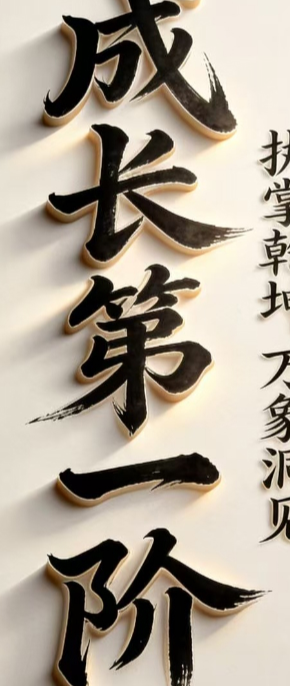 成长第一阶
执掌乾坤 万象洞见